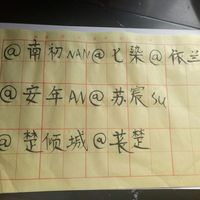 @南初NAN@七染@依兰
@安年AN@苏宸SU
@楚倾城@苌楚